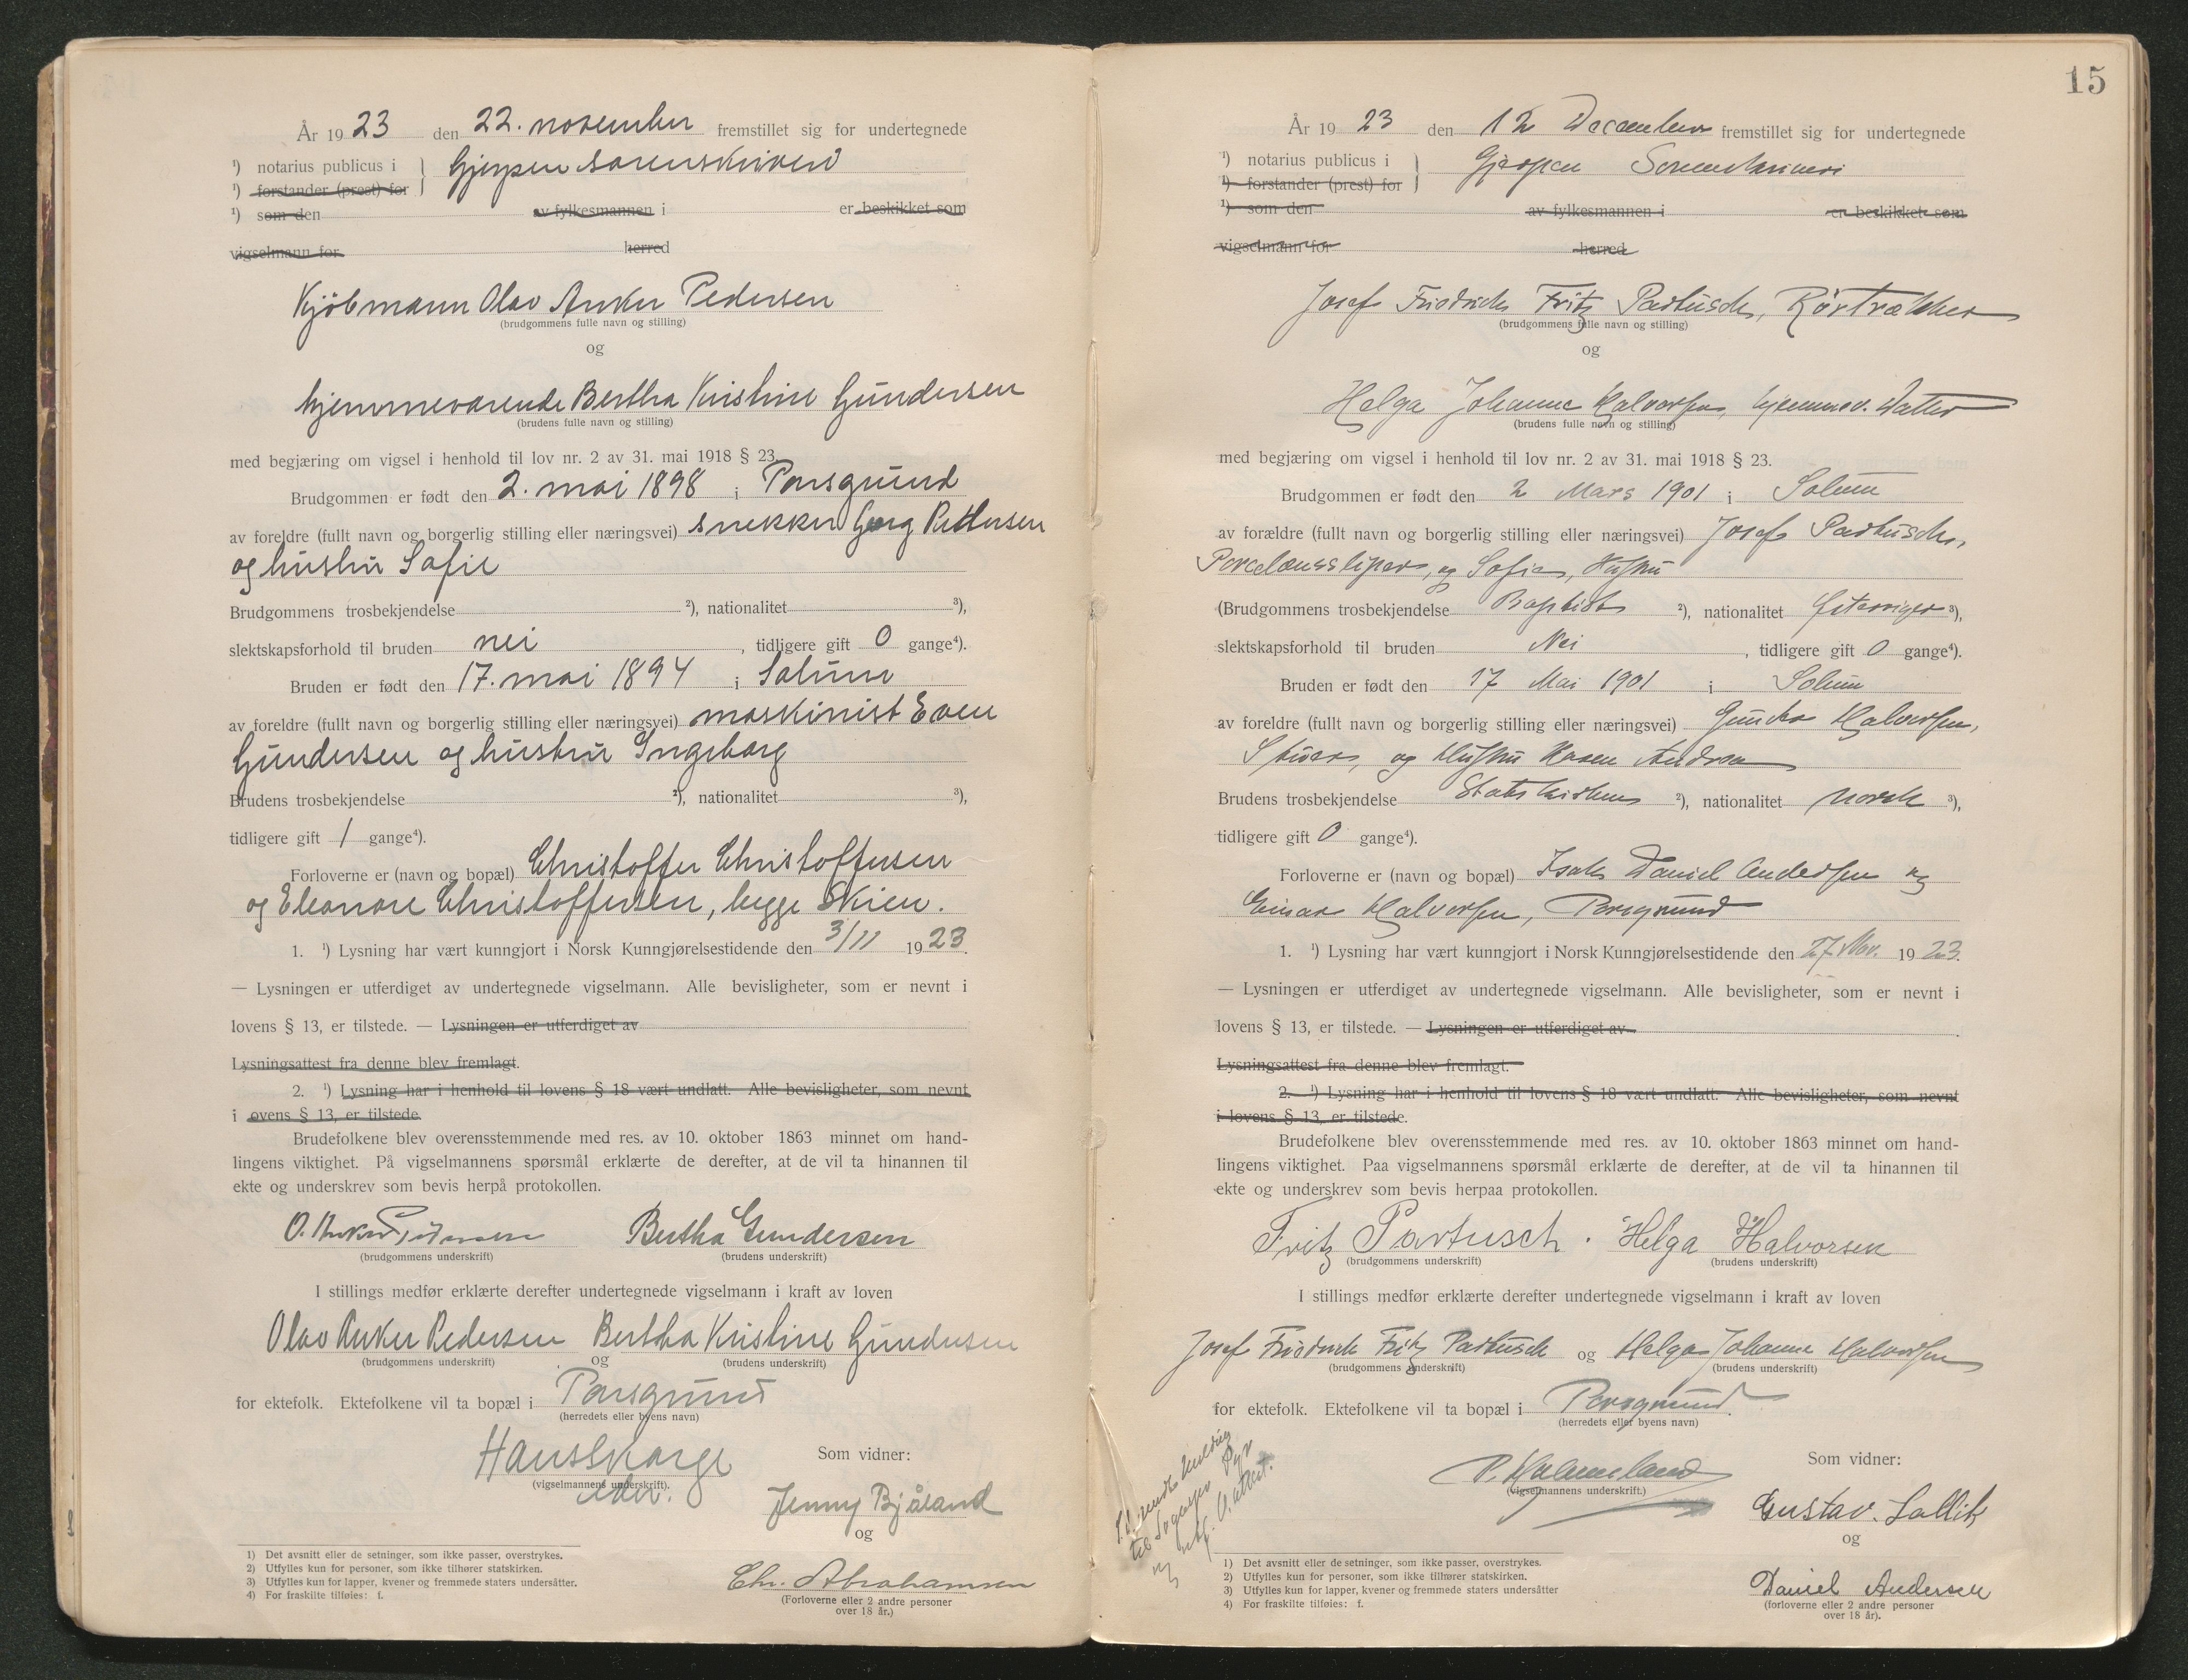 År 19 23 den 22. november fremstillet sig for undertegnede
¹) notarius publicus i } Gjerpen sorenskriveri
¹) forstander (prest) for
¹) som den av fylkesmannen i er beskikket som
vigselmann for herred
Kjöbmann Olav Anker Pedersen
(brudgommens fulle navn og stilling)
og
hjemmeværende Bertha Kristine Gundersen
(brudens fulle navn og stilling)
med begjæring om vigsel i henhold til lov nr. 2 av 31. mai 1918 § 23.
Brudgommen er født den 2. mai 1898 i Porsgrund
av foreldre (fullt navn og borgerlig stilling eller næringsvei) snekker Georg Pettersen
og hustru Sofie
Brudgommens trosbekjendelse ²), nationalitet ³),
slektskapsforhold til bruden nei , tidligere gift 0 gange⁴).
Bruden er født den 17. mai 1894 i Solum
av foreldre (fullt navn og borgerlig stilling eller næringsvei) maskinist Even
Gundersen og hustru Ingeborg
Brudens trosbekjendelse ²), nationalitet ³),
tidligere gift 1 gange⁴).
Forloverne er (navn og bopæl) Christoffer Christoffersen
og Eleonore Christoffersen, begge Skien.
1. ¹) Lysning har vært kunngjort i Norsk Kunngjørelsestidende den 3/11 1923.
— Lysningen er utferdiget av undertegnede vigselmann. Alle bevisligheter, som er nevnt i
lovens § 13, er tilstede. — Lysningen er utferdiget av
Lysningsattest fra denne blev fremlagt.
2. ¹) Lysning har i henhold til lovens § 18 vært undlatt. Alle bevisligheter, som nevnt
i ovens § 13, er tilstede.
Brudefolkene blev overensstemmende med res. av 10. oktober 1863 minnet om hand-
lingens viktighet. På vigselmannens spørsmål erklærte de derefter, at de vil ta hinannen til
ekte og underskrev som bevis herpå protokollen.
O. Anker Pedersen Bertha Gundersen
(brudgommens underskrift) (brudens underskrift)
I stillings medfør erklærte derefter undertegnede vigselmann i kraft av loven
Olav Anker Pedersen og Bertha Kristine Gundersen
(brudgommens underskrift) (brudens underskrift)
for ektefolk. Ektefolkene vil ta bopæl i Porsgrund
(herredets eller byens navn)
Hans Skarge
(vigselmannens underskrift).
Som vidner:
Jenny Bjåland
og
Chr. Abrahamsen
(Forloverne eller 2 andre personer
over 18 år.)
1) Det avsnitt eller de setninger, som ikke passer, overstrykes.
2) Utfylles kun for personer, som ikke tilhører statskirken.
3) Utfylles kun for lapper, kvener og fremmede staters undersåtter.
4) For fraskilte tilføies: f.
15
År 19 23 den 12 December fremstillet sig for undertegnede
¹) notarius publicus i } Gjerpen Sorenskriveri
¹) forstander (prest) for
¹) som den av fylkesmannen i er beskikket som
vigselmann for herred
Josef Friedrich Fritz Partusch, Rörtrækker
(brudgommens fulle navn og stilling)
og
Helga Johanne Halvorsen, hjemmev. Datter
(brudens fulle navn og stilling)
med begjæring om vigsel i henhold til lov nr. 2 av 31. mai 1918 § 23.
Brudgommen er født den 2 Mars 1901 i Solum
av forældre (fullt navn og borgerlig stilling eller næringsvei) Josef Partusch,
Porcelænssliper, og Sofie, Hustru
(Brudgommens trosbekjendelse Baptist ²), nationalitet Østerriger ³),
slektskapsforhold til bruden Nei , tidligere gift 0 gange⁴).
Bruden er født den 17 Mai 1901 i Solum
av foreldre (fullt navn og borgerlig stilling eller næringsvei) Halvorsen,
og Hustru Karen Andrea
Brudens trosbekjendelse Statskirken ²), nationalitet norsk ³),
tidligere gift 0 gange⁴).
Forloverne er (navn og bopæl) Isak Daniel Andersen og
Einar Halvorsen, Porsgrund
1. ¹) Lysning har vært kunngjort i Norsk Kunngjørelsestidende den 27 Nov. 1923.
— Lysningen er utferdiget av undertegnede vigselmann. Alle bevisligheter, som er nevnt i
lovens § 13, er tilstede. — Lysningen er utferdiget av .
Lysningsattest fra denne blev fremlagt.
2. ¹) Lysning har i henhold til lovens § 18 vært undlatt. Alle bevisligheter, som nevnt
i lovens § 13, er tilstede.
Brudefolkene blev overensstemmende med res. av 10. oktober 1863 minnet om hand-
lingens viktighet. Paa vigselmannens spørsmål erklærte de derefter, at de vil ta hinannen til
ekte og underskrev som bevis herpaa protokollen.
Fritz Partusch . Helga Halvorsen
(brudgommens underskrift) (brudens underskrift)
I stillings medfør erklærte derefter undertegnede vigselmann i kraft av loven
Josef Friedrich Fritz Partusch og Helga Johanne Halvorsen
(brudgommens underskrift) (brudens underskrift)
for ektefolk. Ektefolkene vil ta bopæl i Porsgrund.
(herredets eller byens navn)
P. Holmeland
(vigselmannens underskrift.)
Som vidner:
Gustav. Sallik
og
Daniel Andersen
(forloverne eller 2 andre personer
over 18 år).
1) Det avsnitt eller de setninger, som ikke passer, overstrykes.
2) Utfylles kun for personer, som ikke tilhører statskirken.
3) Utfylles kun for lapper, kvener og fremmede staters undersåtter
4) For fraskilte tilføies: f.